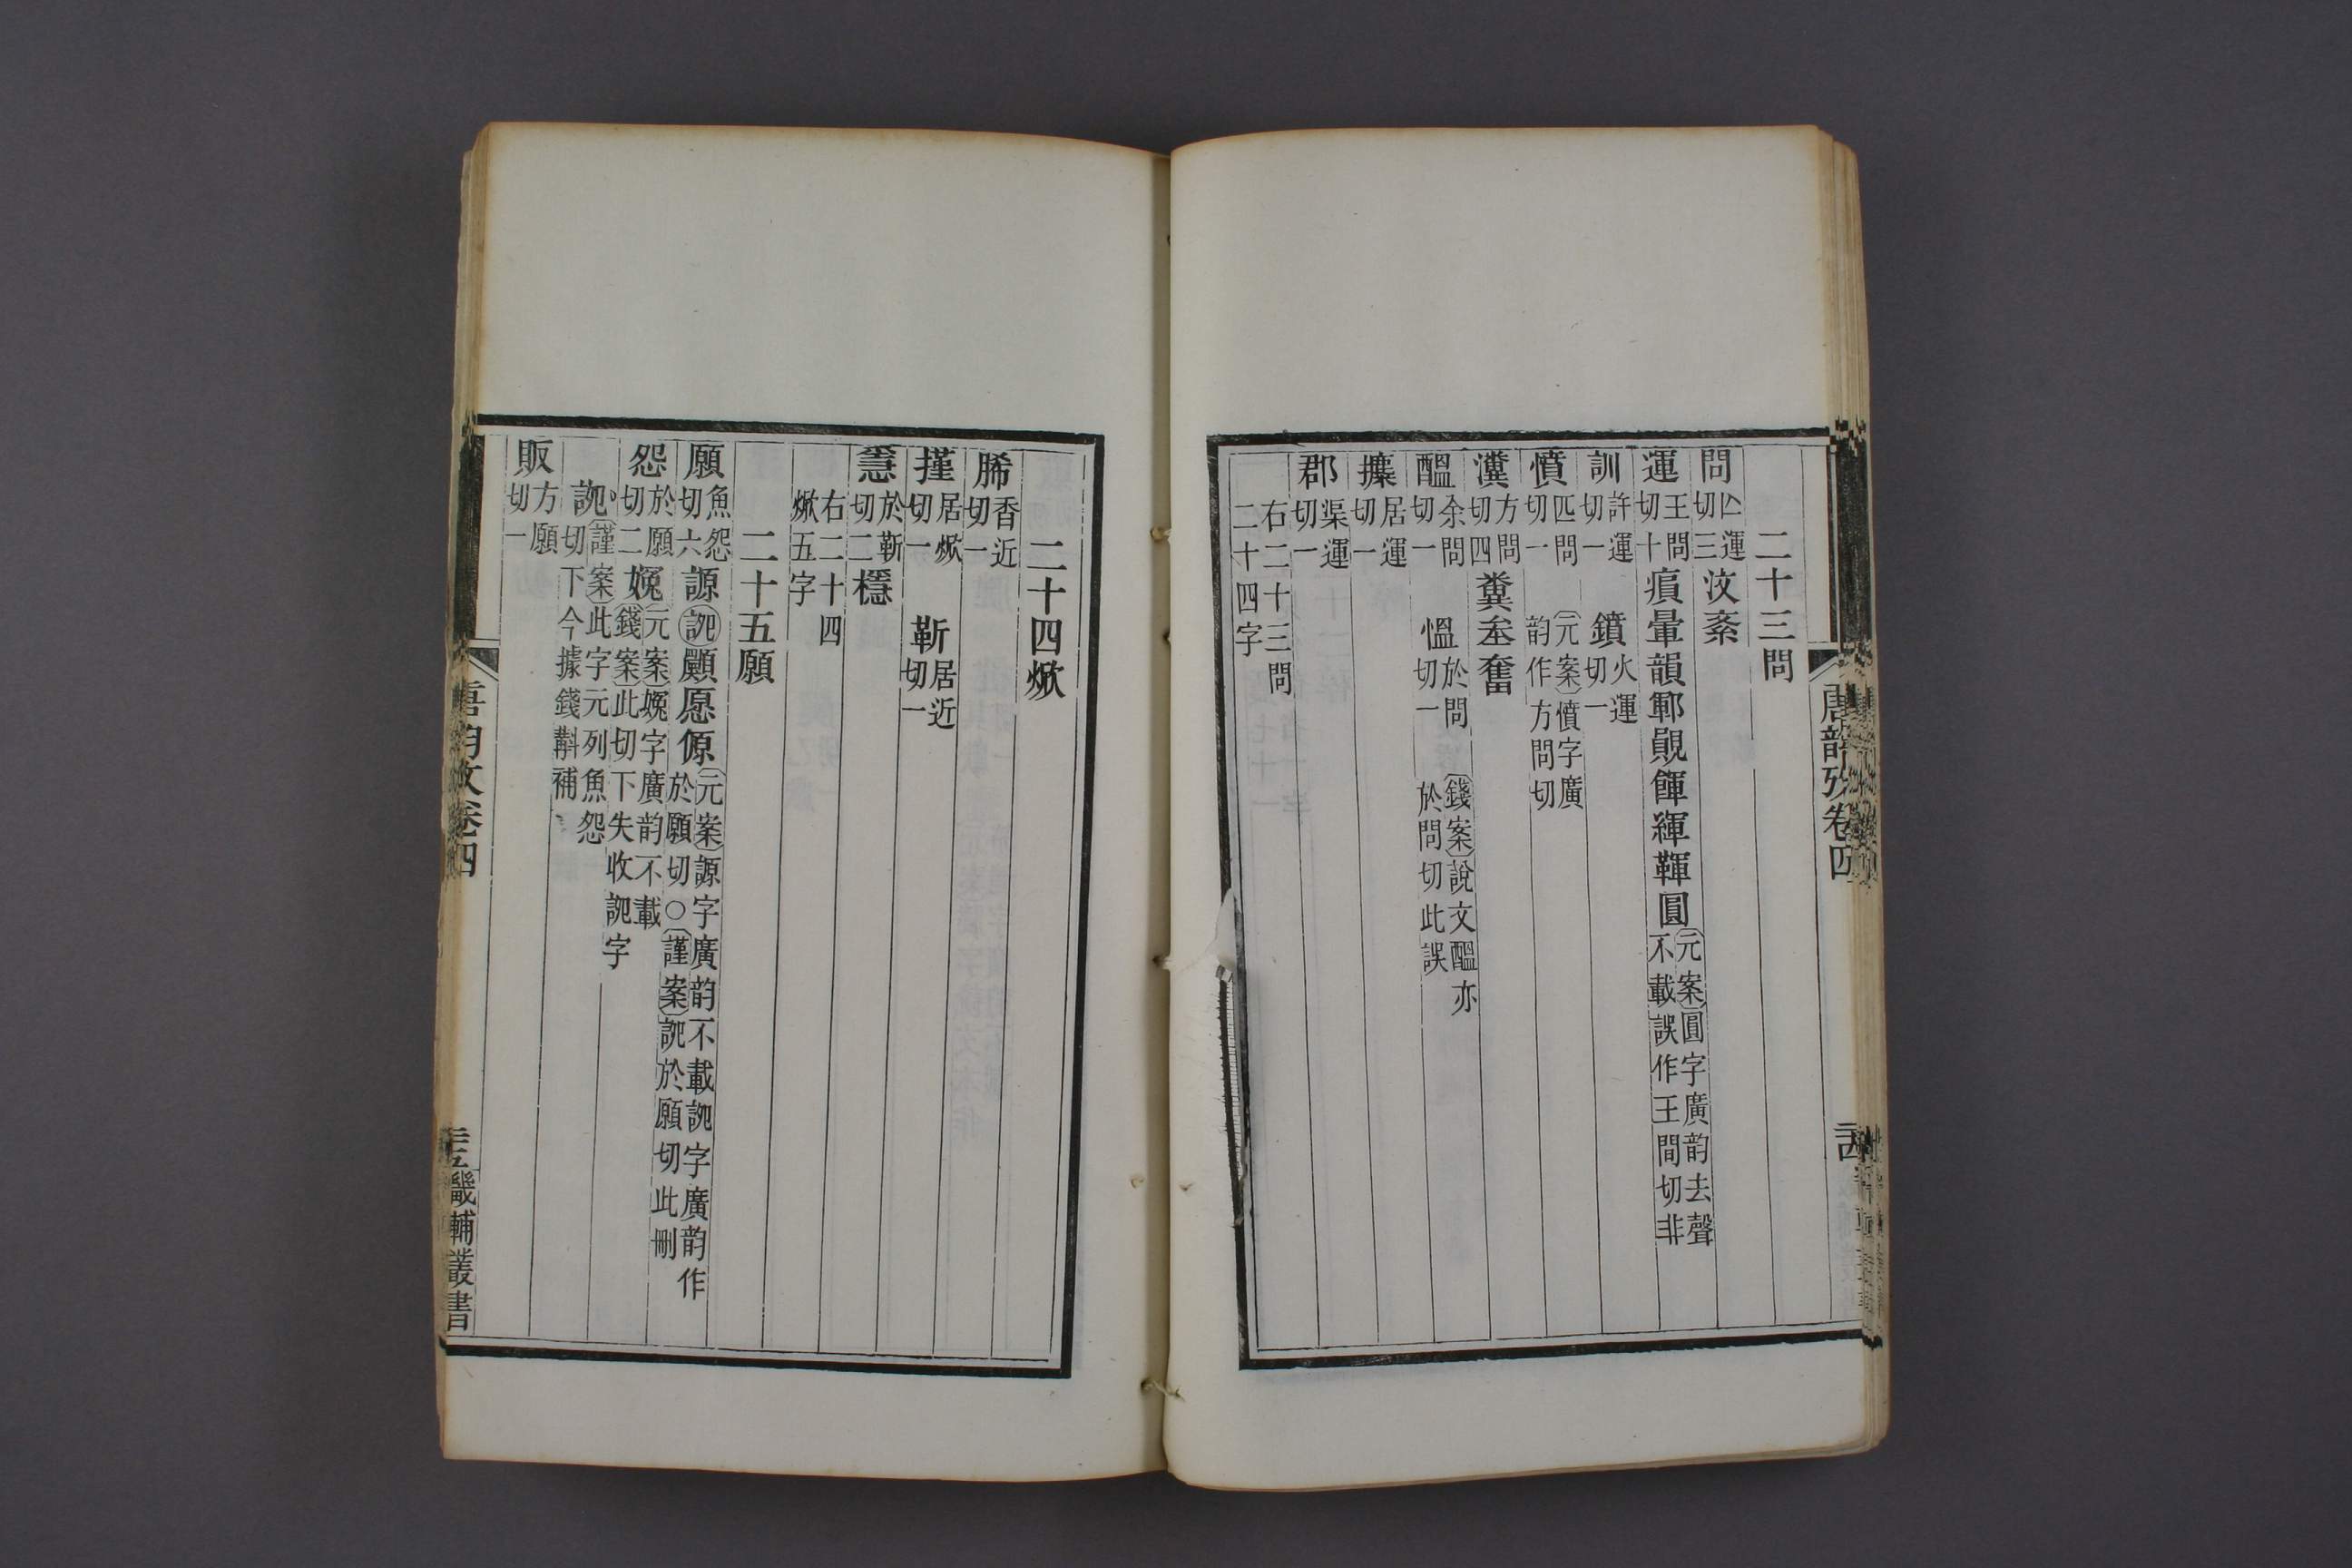 唐韵攷卷四
二十三問
問亾運切三汶紊
運王問切十㾓暈韻鄆䚋餫緷鞸圓元案圓字廣韵去聲不載誤作王間切非
訓許運切一 鐼火運切一
憤匹問切一 元案憤字廣韵作方問切
瀵方問切四糞坌奮
醞余問切一 慍於問切一 錢案說文醞亦於問切此誤
攈居運切一
郡渠運切一
右二十三問二十四字
二十四焮
脪香近切一
㨷居焮切一 靳居近切一
㥯於靳切二檼
右二十四焮五字
二十五願
願魚怨切六謜䛄顚愿傆元案謜字廣韵不載䛄字廣韵作於願切○謹案䛄於願切此刪
怨於願切二㛪元案㛪字廣韵不載錢案此切下失收䛄字
䛄謹案此字元列魚怨切下今據錢斠補
販方願切一
唐韵攷卷四
畿輔叢書